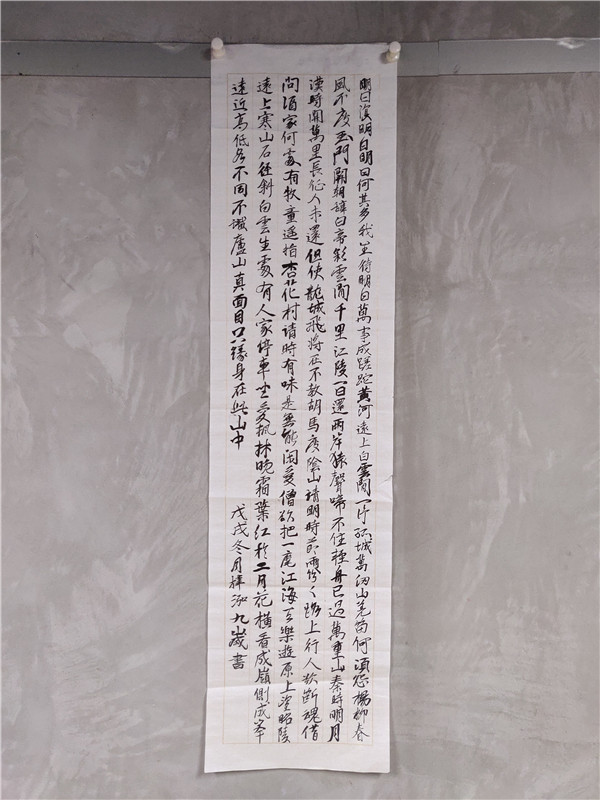 明日復明日明日何其多我生待明日萬事成蹉跎黃河遠上白雲間一片孤城萬仞山羌笛何須怨楊柳春
風不度玉門關朝辭白帝彩雲間千里江陵一日還兩岸猿聲啼不住輕舟已過萬重山秦時明月
漢時關萬里長征人未還但使龍城飛將在不教胡馬度陰山清明時節雨紛〻路上行人欲斷魂借
問酒家何處有牧童遙指杏花村清時有味是無能閑愛僧欲把一麾江海去樂遊原上望昭陵
遠上寒山石徑斜白雲生處有人家停車坐愛楓林晚霜葉紅於二月花橫看成嶺側成峯
遠近高低各不同不識廬山真面目只緣身在此山中
戊戌冬月梓泓九歲書